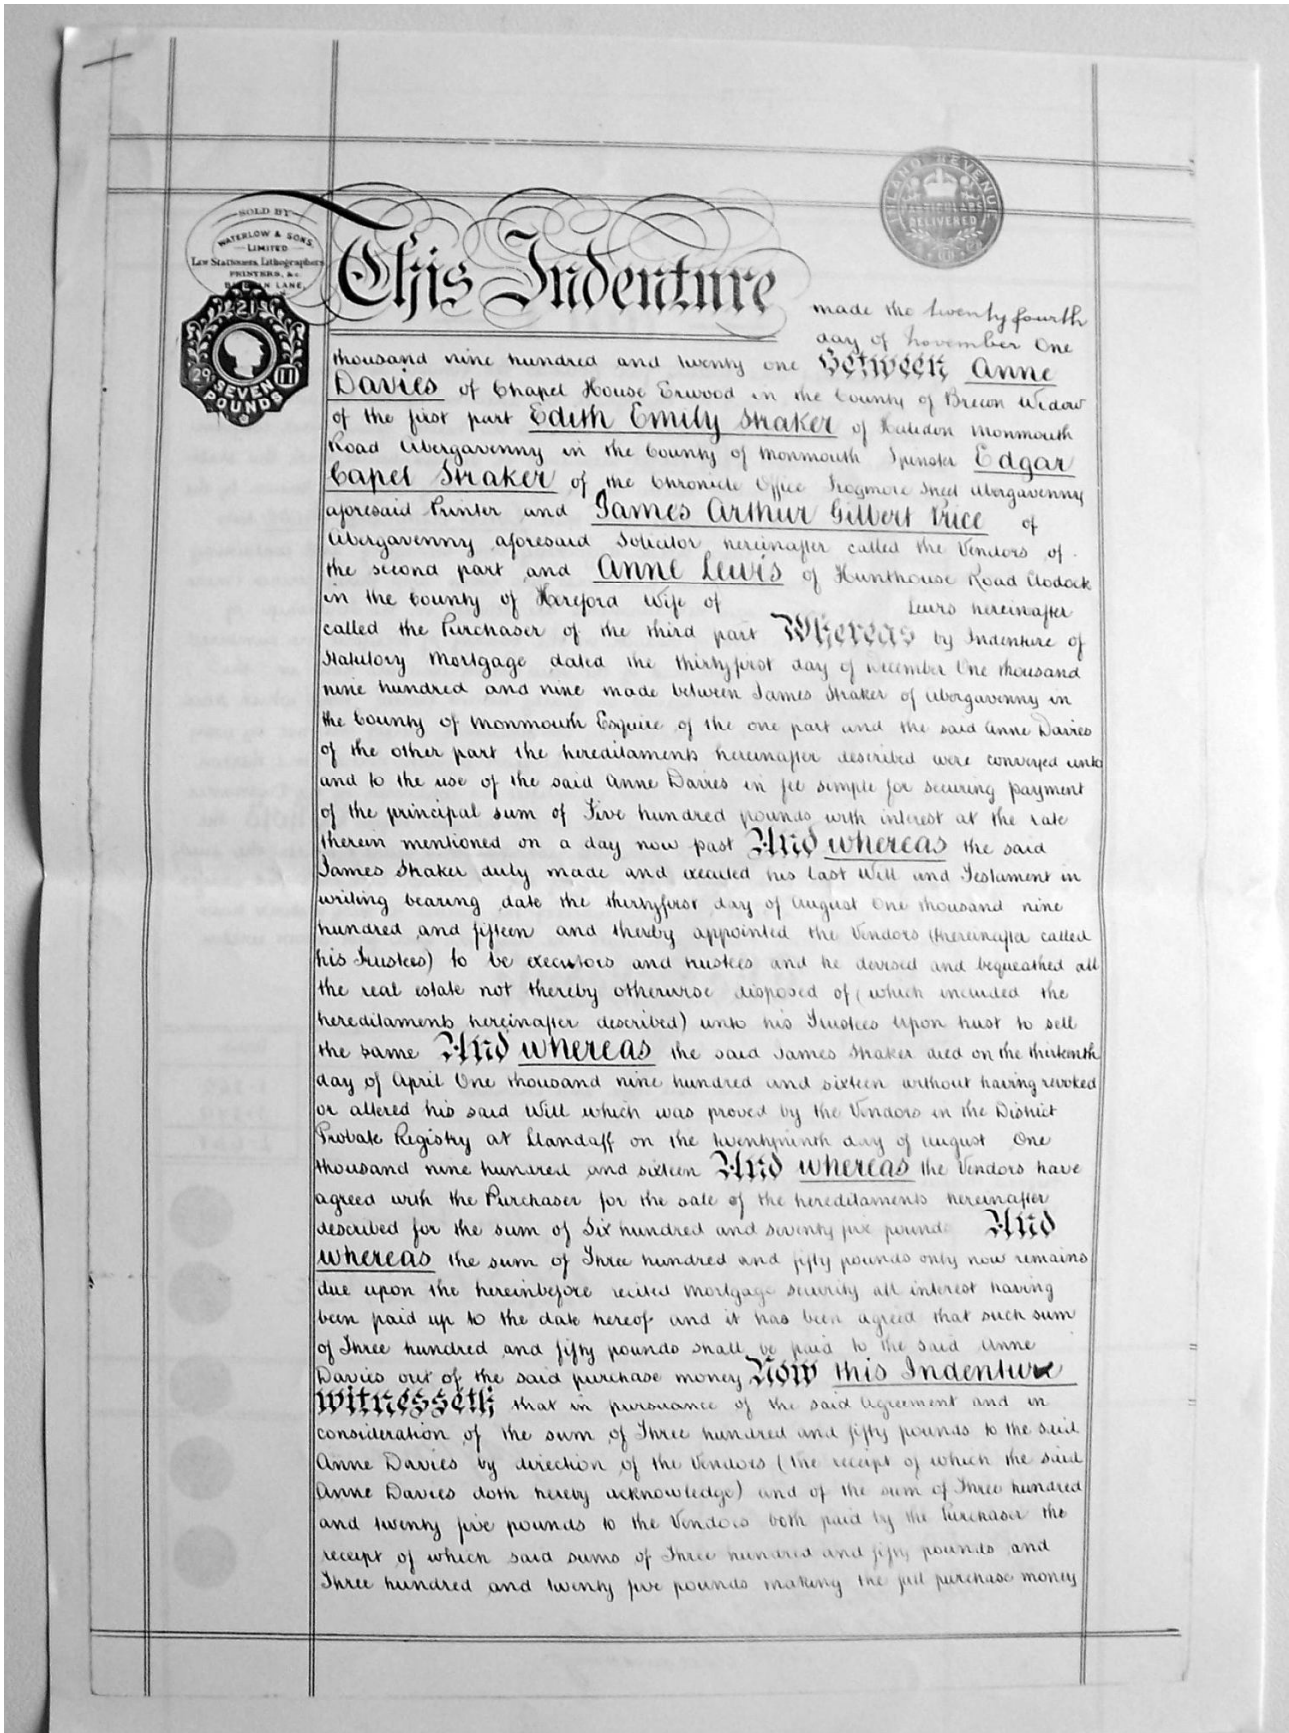 SOLD BY
WATERLOW & SONS,
LIMITED
Law Stationers, Lithographers
PRINTERS, &c.
LANE,
INLAND REVENUE
PARTICULARS
DELIVERED
21
29 11
SEVEN
POUNDS
This Indenture made the twenty fourth
day of November One
thousand nine hundred and twenty one Between Anne
Davies of Chapel House Erwood in the County of Brecon Widow
of the first part Edith Emily Straker of Halidon Monmouth
Road Abergavenny in the County of Monmouth Spinster Edgar
Capel Straker of the Chronicle Office Frogmore Street Abergavenny
aforesaid Printer and James Arthur Gilbert Price of
Abergavenny aforesaid Solicitor hereinafter called the Vendors of
the second part and Anne Lewis of Hunthouse Road Clodock
in the County of Hereford Wife of Lewis hereinafter
called the Purchaser of the third part Whereas by Indenture of
Statutory Mortgage dated the thirtyfirst day of December One thousand
nine hundred and nine made between James Straker of Abergavenny in
the County of Monmouth Esquire of the one part and the said Anne Davies
of the other part the hereditaments hereinafter described were conveyed unto
and to the use of the said Anne Davies in fee simple for securing payment
of the principal sum of Five hundred pounds with interest at the rate
therein mentioned on a day now past And whereas the said
James Straker duly made and executed his last Will and Testament in
writing bearing date the thirtyfirst day of August One thousand nine
hundred and fifteen and thereby appointed the Vendors (thereinafter called
his Trustees) to be executors and trustees and he devised and bequeathed all
the real estate not thereby otherwise disposed of (which included the
hereditaments hereinafter described) unto his Trustees Upon trust to sell
the same And whereas the said James Straker died on the thirteenth
day of April One thousand nine hundred and sixteen without having revoked
or altered his said Will which was proved by the Vendors in the District
Probate Registry at Llandaff on the twentyninth day of August One
thousand nine hundred and sixteen And whereas the Vendors have
agreed with the Purchaser for the sale of the hereditaments hereinafter
described for the sum of Six hundred and seventy five pounds And
whereas the sum of Three hundred and fifty pounds only now remains
due upon the hereinbefore recited Mortgage security all interest having
been paid up to the date hereof and it has been agreed that such sum
of Three hundred and fifty pounds shall be paid to the said Anne
Davies out of the said purchase money Now this Indenture
witnesseth that in pursuance of the said Agreement and in
consideration of the sum of Three hundred and fifty pounds to the said
Anne Davies by direction of the Vendors (the receipt of which the said
Anne Davies doth hereby acknowledge) and of the sum of Three hundred
and twenty five pounds to the Vendors both paid by the Purchaser the
receipt of which said sums of Three hundred and fifty pounds and
Three hundred and twenty five pounds making the full purchase money